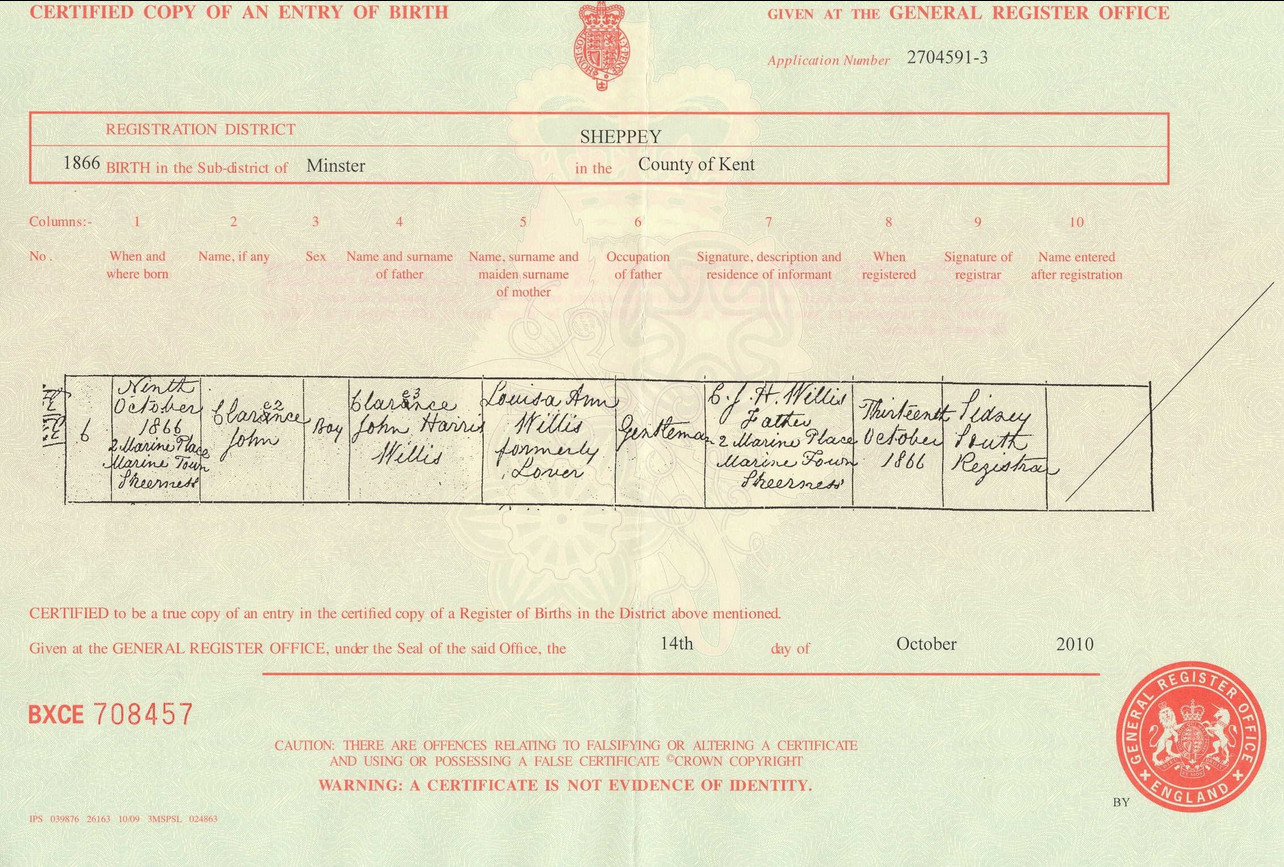 CERTIFIED COPY OF AN ENTRY OF BIRTH
GIVEN AT THE GENERAL REGISTER OFFICE
Application Number 2704591-3
REGISTRATION DISTRICT SHEPPEY
1866 BIRTH in the Sub-district of Minster in the County of Kent
Columns:- 1 2 3 4 5 6 7 8 9 10
No. When and where born
Name, if any
Sex
Name and surname of father
Name, surname and maiden surname of mother
Occupation of father
Signature, description and residence of informant
When registered
Signature of registrar
Name entered after registration
6
Ninth
October
1866
2 Marine Place
Marine Town
Sheerness
Clarence
John
Boy
Clarence
John Harris
Willis
Louisa Ann
Willis
formerly
Lover
Gentleman
C. J. H. Willis
Father
2 Marine Place
Marine Town
Sheerness
Thirteenth
October
1866
Sidney
South
Registrar
CERTIFIED to be a true copy of an entry in the certified copy of a Register of Births in the District above mentioned.
Given at the GENERAL REGISTER OFFICE, under the Seal of the said Office, the 14th day of October 2010
BXCE 708457
CAUTION: THERE ARE OFFENCES RELATING TO FALSIFYING OR ALTERING A CERTIFICATE
AND USING OR POSSESSING A FALSE CERTIFICATE ©CROWN COPYRIGHT
WARNING: A CERTIFICATE IS NOT EVIDENCE OF IDENTITY.
GENERAL REGISTER OFFICE
ENGLAND
BY
IPS 039876 26163 10/09 3MSPSL 024863